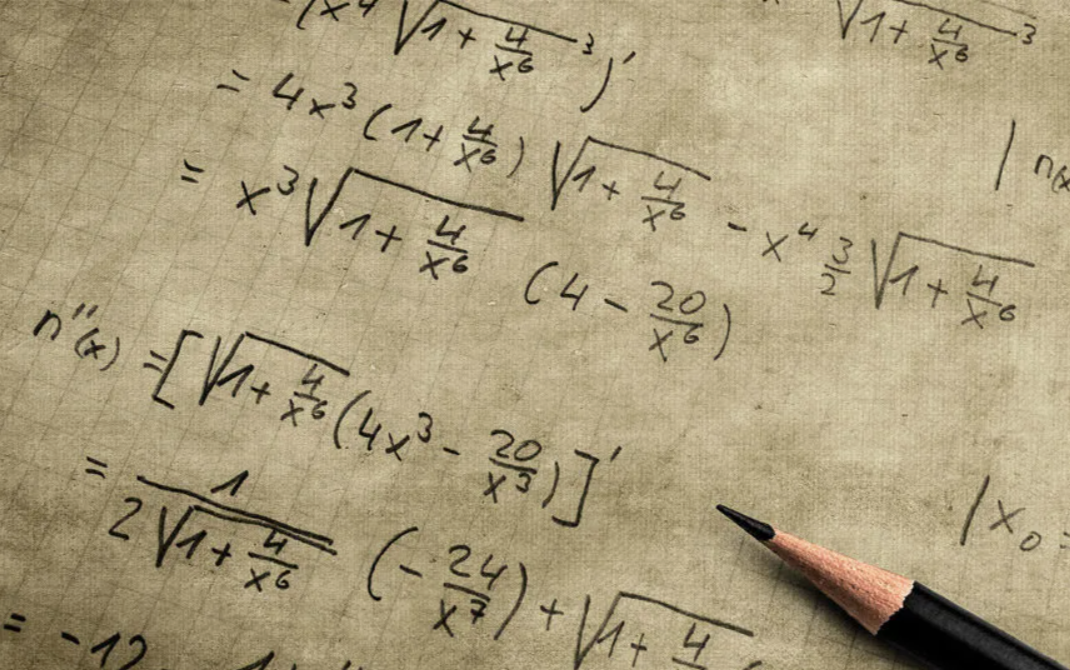 (x⁴ √(1 + 4/x⁶)³)′
√(1 + 4/x⁶)³
= 4x³ (1 + 4/x⁶) √(1 + 4/x⁶) - x⁴ 3/2 √(1 + 4/x⁶)
| n(x
= x³ √(1 + 4/x⁶) (4 - 20/x⁶)
n″(x) = [√(1 + 4/x⁶) (4x³ - 20/x³)]′
= 1/(2√(1 + 4/x⁶)) (-24/x⁷) + √(1 + 4/
| x₀ =
= -12